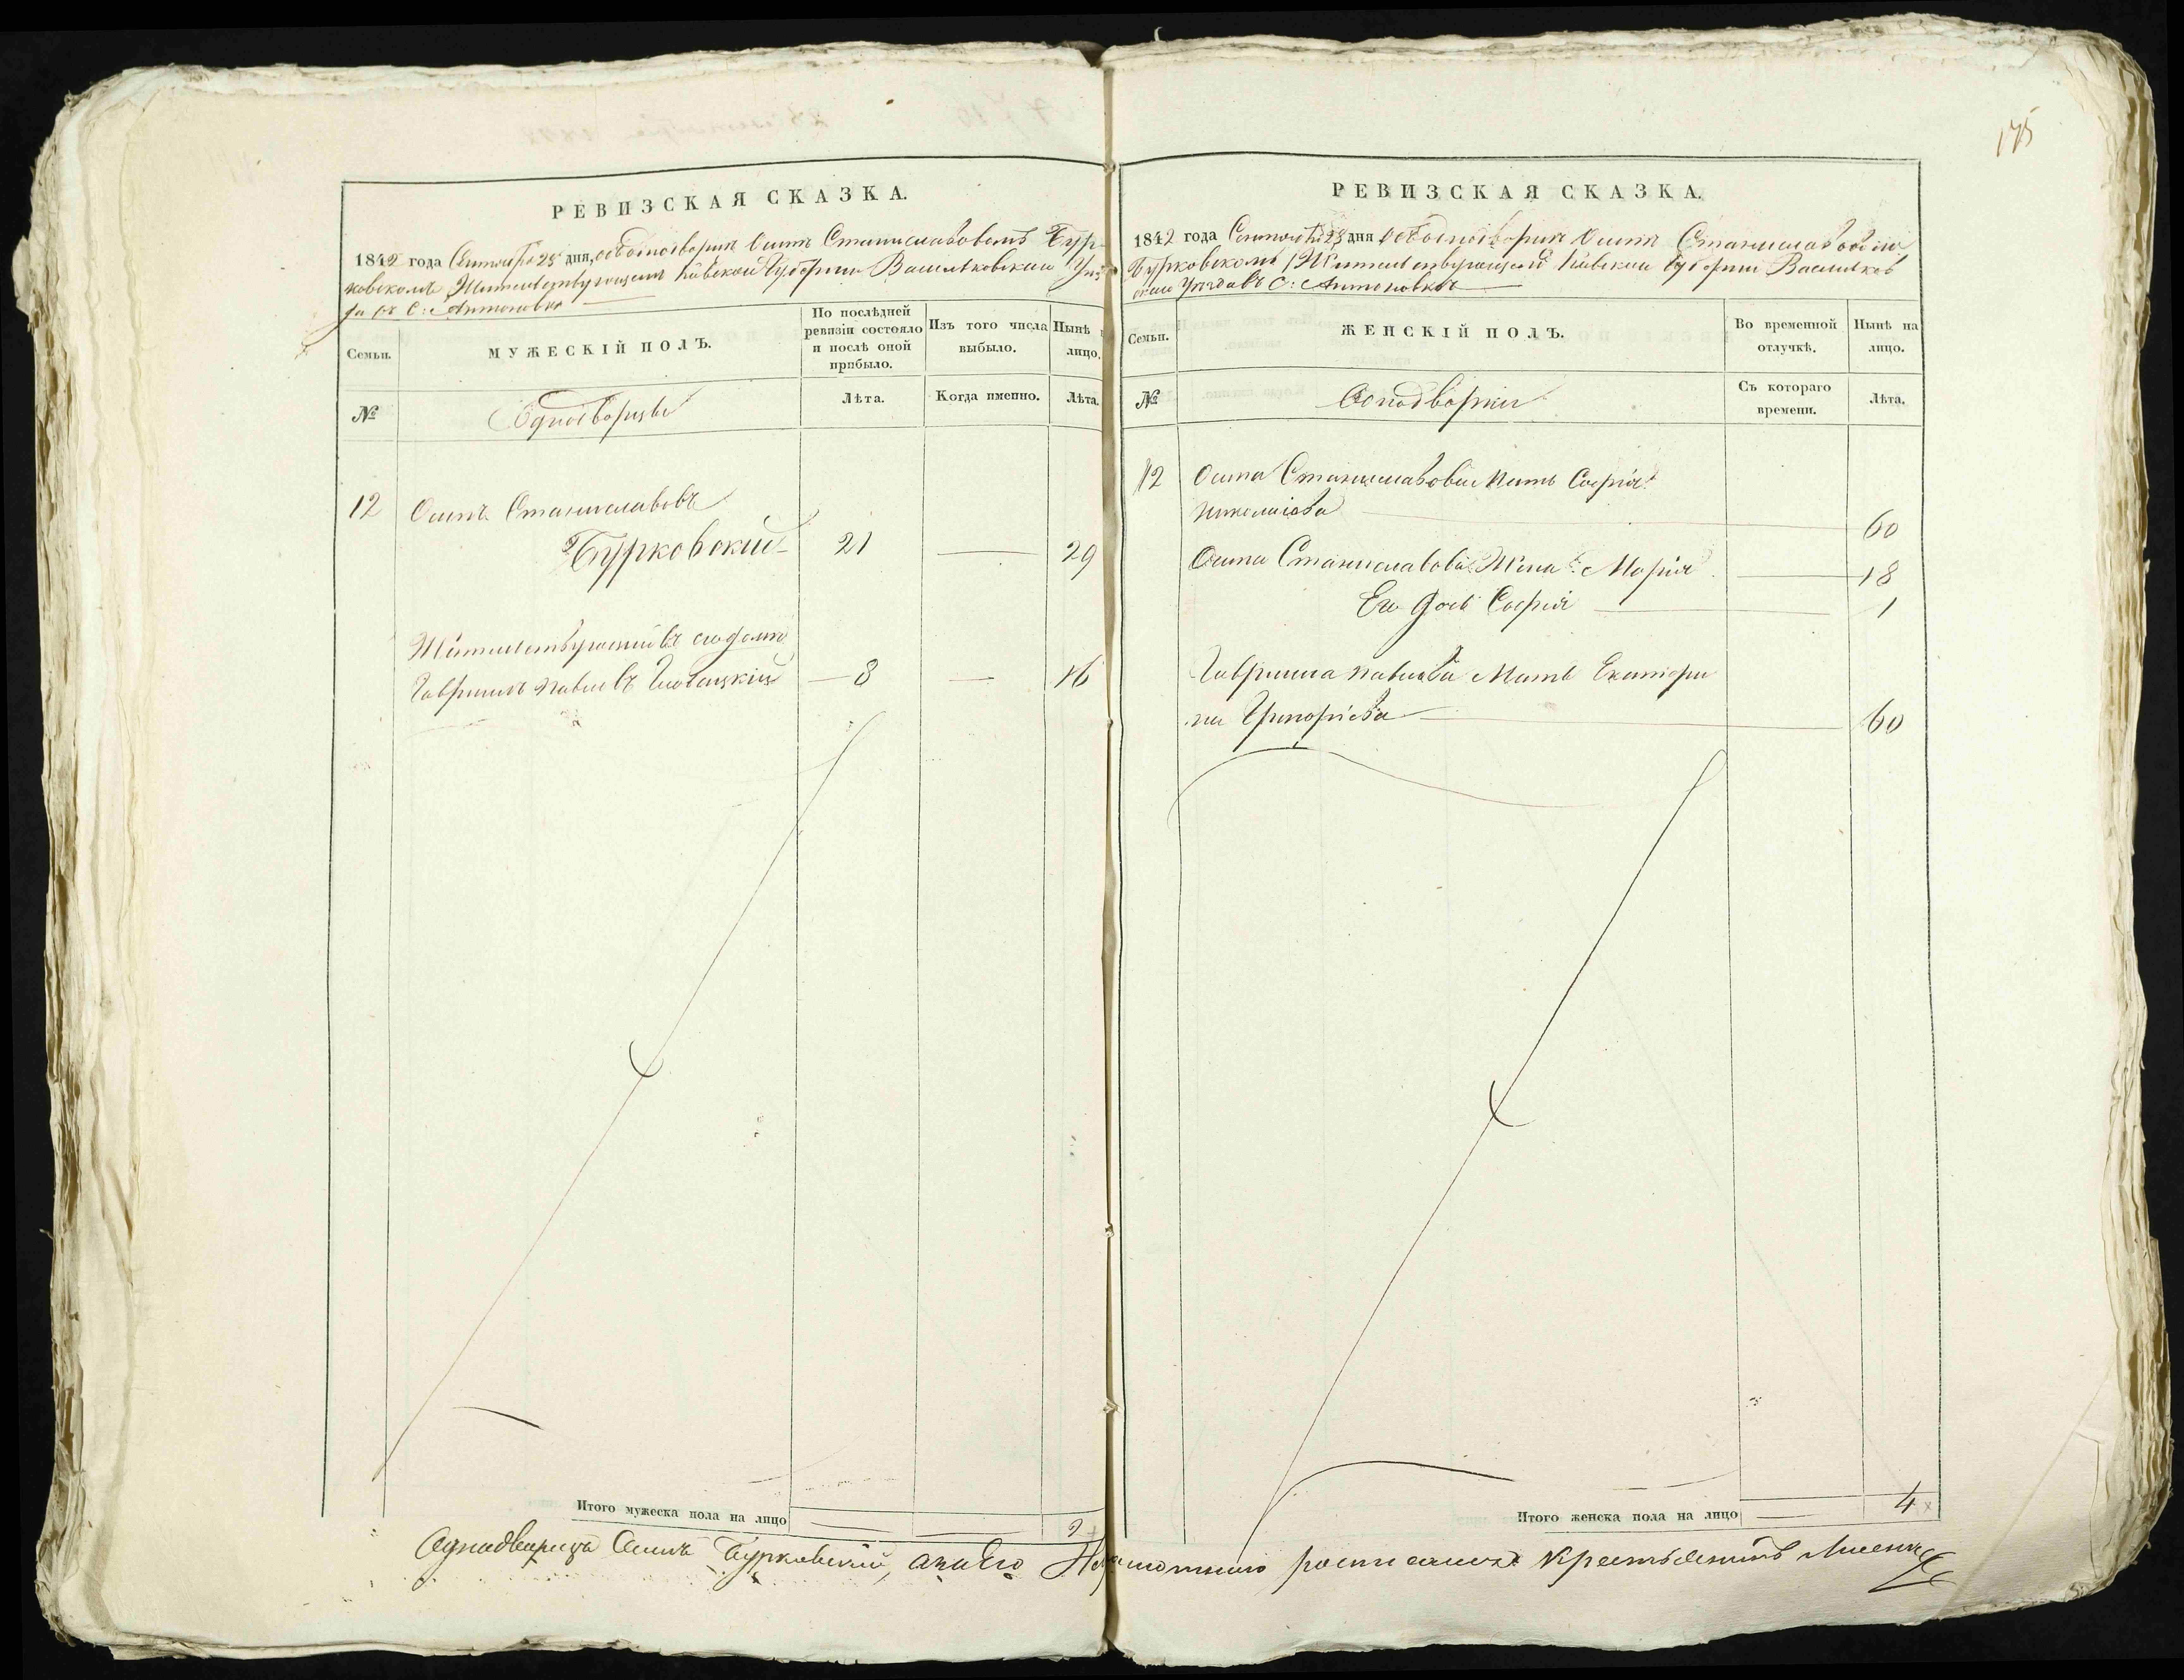 175
РЕВИЗСКАЯ СКАЗКА.
1842 года Сентября 25 дня, объ однодворцѣ Осипѣ Станиславовомъ Бур-
ковскомъ Жительствующемъ Кіевской Губерніи Васильковскаго Уѣз-
да въ С: Антоновкѣ
Семьи.
МУЖЕСКІЙ ПОЛЪ.
По послѣдней ревизіи состояло и послѣ оной прибыло.
Изъ того числа выбыло.
Нынѣ
лицо.
№
Однодворцы
Лѣта.
Когда именно.
Лѣта.
12 Осипъ Станиславовъ
Бурковский 21 — 29
Жительствующій въ его домѣ
Гавриилъ Павловъ — 8 — 16
Итого мужеска пола на лицо — — 2
РЕВИЗСКАЯ СКАЗКА.
1842 года Сентября 25 дня объ однодворцѣ Осипѣ Станиславовомъ
Бурковскомъ Жительствующемъ Кіевской Губерніи Васильков
скаго Уѣзда въ С: Антоновкѣ
Семьи.
ЖЕНСКІЙ ПОЛЪ.
Во временной отлучкѣ.
Нынѣ на лицо.
№
Однодворки
Съ котораго времени.
Лѣта.
12 Осипа Станиславова Мать Софія
Николаева 60
Осипа Станиславова Жена Марія — 18
Его дочь Софія — 1
Гавриила Павлова Мать Екатери
на Григорьева — 60
Итого женска пола на лицо — 4
Однодворецъ Осипъ Бурковский, а за его Неграмотного росписался Крестьянинъ